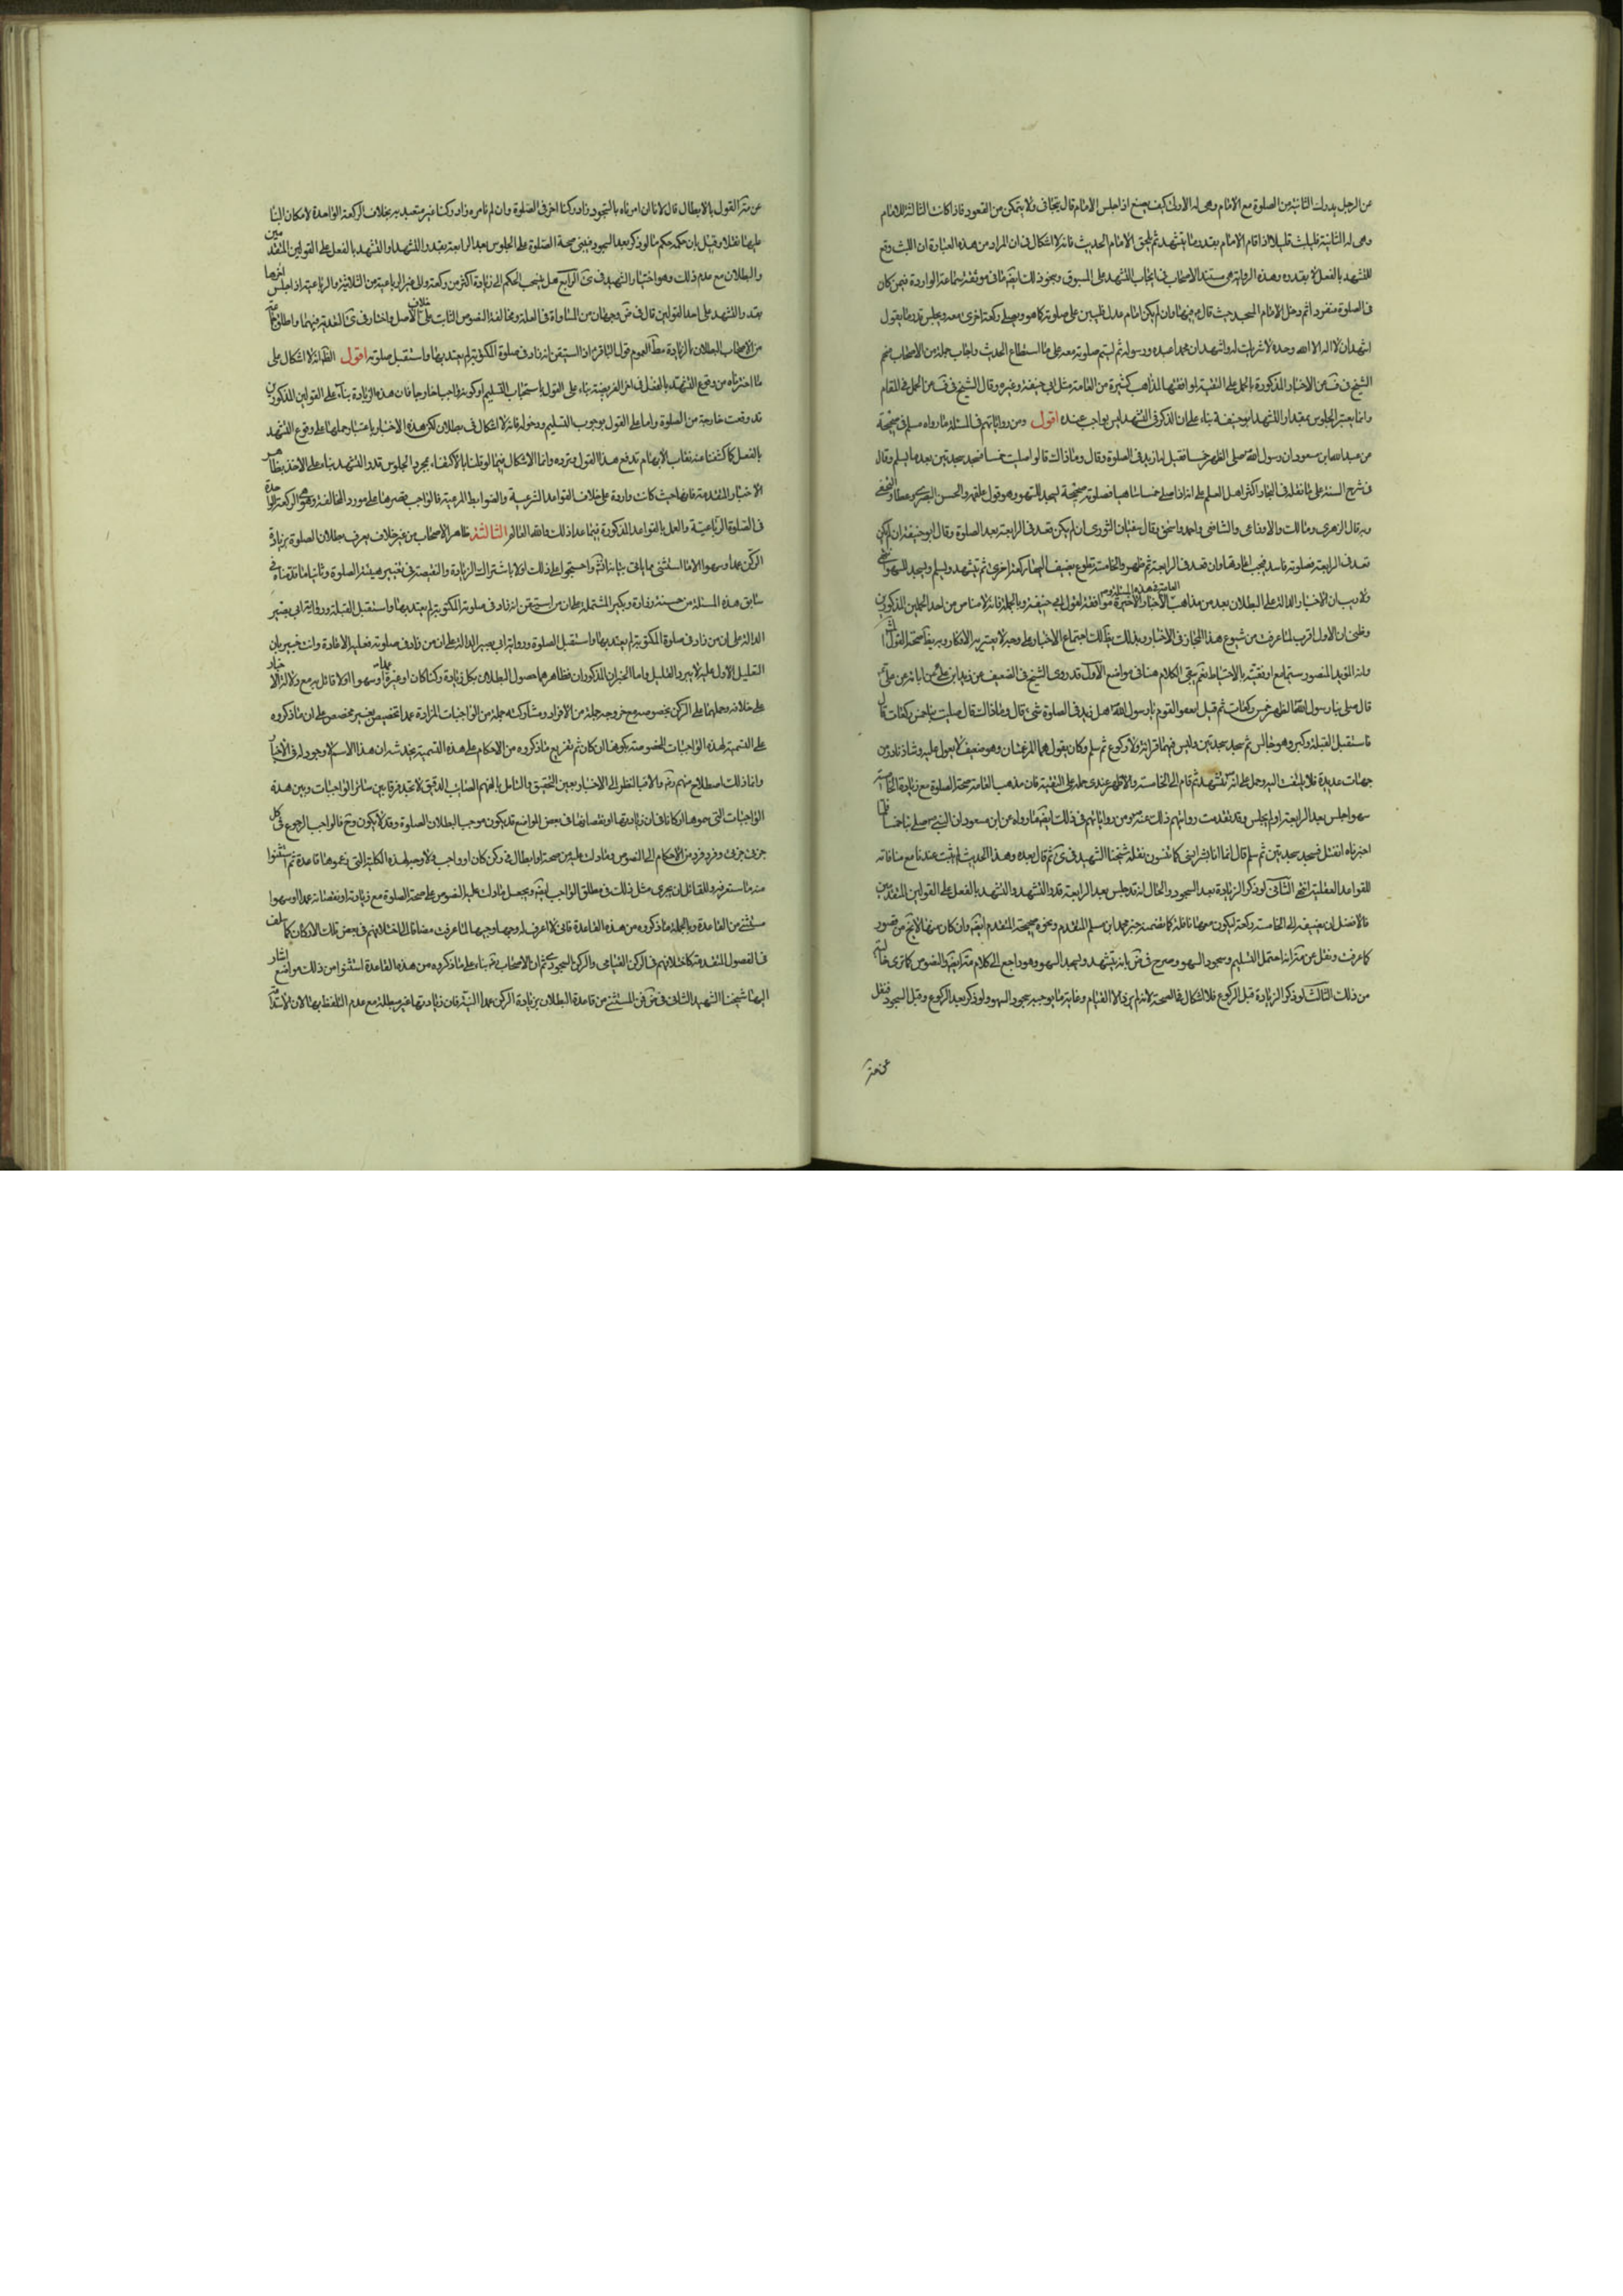 عن الرجل يدرك الثانية من الصلوة مع الامام وهى له الاولى كيف يصنع اذا جلس الامام قال يتجافى ولا يتمكن من القعود فاذا كانت الثالثة للامام
وهى له الثانية فليلبث قليلا اذا قام الامام بقدر ما يتشهد ثم يلحق الامام الحديث فانه لا اشكال فى ان المراد من هذه العبارة ان اللبث وقع
للتشهد بالفعل لا بقدره وهذه الرواية هى مستند الاصحاب فى ايجاب التشهد على المسبوق ونحو ذلك ايضا ما فى موثقة سماعة الواردة فيمن كان
فى الصلوة منفردا ثم دخل الامام المسجد حيث قال فيها وان لم يكن امام عدل فليبن على صلوته كما هو ويصلى ركعة اخرى معه ويجلس قدر ما يقول
اشهد ان لا اله الا الله وحده لا شريك له واشهد ان محمدا عبده ورسوله ثم ليتم صلوته معه على ما استطاع الحديث واجاب جملة من الاصحاب منهم
الشيخ فى عن الاخبار المذكورة بالحمل على التقية لموافقتها لمذاهب كثيرة من العامة مثل ابى حنيفة وغيره وقال الشيخ فى
وانما يعتبر الجلوس بمقدار التشهد ابو حنيفة بناء على ان الذكر فى التشهد ليس بواجب عنده اقول ومن رواياتهم فى المسئلة ما رواه مسلم فى صحيحه
عن عبد الله ابن مسعود ان رسول الله صلى الظهر خمسا فقيل له ازيد فى الصلوة وقال وما ذاك قالوا صليت خمسا فسجد سجدتين بعد ما سلم وقال
فى شرح السنة على ما نقله فى البحار اكثر اهل العلم على انه اذا صلى خمسا ساهيا فصلوته صحيحة يسجد للسهو وهو قول علقمة والحسن البصرى وعطا والنخعى
وبه قال الزهرى ومالك والاوزاعى والشافعى واحمد واسحق وقال سفيان الثورى ان لم يكن قعد فى الرابعة يعيد الصلوة وقال ابو حنيفة ان لم يكن
قعد فى الرابعة فصلوته فاسدة يجب اعادتها وان قعد فى الرابعة ثم ظهره والخامسة تطوع يضيف اليها ركعة اخرى ثم يتشهد ويسلم ويسجد للسهو
ولا ريب ان الاخبار الدالة على البطلان بعيد من مذاهب العامة فى هذه المسئلة الاخبار الاخيرة موافقة لقول ابى حنيفة وبالجملة فانه لا مناص من احد الحملين المذكورين
وظنى ان الاول اقرب لما عرفت من شيوع هذا المجاز فى الاخبار وبذلك اجتماع الاخبار على وجه لا يعتريه الانكار وبه صحة القول
قال صلى بنا رسول الله الظهر خمس ركعات ثم قيل لبعض القوم يا رسول الله هل زيد فى الصلوة شئ قال وما ذاك قال صليت بنا خمس ركعات قال
فاستقبل القبلة وكبر وهو جالس ثم سجد سجدتين وليس فيهما قرائة ولا ركوع ثم سلم وكان يقول هما المرغمتان وهو ضعيف لا يعول عليه وشاذ نادر من
جهات عديدة فلا يلتفت اليه وحمل على انه تشهد ثم قام الى الخامسة والاظهر عندى حمله على التقية فان مذهب العامة صحة الصلوة مع زيادة الخامسة
سهوا جلس بعد الرابعة او لم يجلس وقد تقدمت روايتهم ذلك عنه ومن رواياتهم فى ذلك ايضا ما رواه عن ابن مسعود ان النبى صلى بنا خمسا فلما
اخبرناه انفتل فسجد سجدتين ثم سلم قال انما انا بشر انسى كما تنسون نقله شيخنا الشهيد فى ثم قال بعده وهذا الحديث لم يثبت عندنا مع منافاته
للقواعد العقلية انتهى الثانى لو ذكر الزيادة بعد السجود والحال انه قد جلس بعد الرابعة قدر التشهد والتشهد بالفعل على القولين المتقدمين
فالافضل ان يضيف الى الخامسة ركعة ليكون معها نافلة كما تضمنه خبر محمد ابن مسلم المتقدم ونحوه صحيحة المتقدم ايضا وان كان
كما عرفت ونقل عن انه احتمل التسليم وسجود السهو وصرح فى بانه يتشهد ويسجد السهو وهو راجع الى كلام
من ذلك الثالث لو ذكر الزيادة قبل الركوع فلا اشكال فى الصحة لانه لم يزد الا القيام وغايته ما يوجبه سجود السهو ولو ذكر بعد الركوع وقبل السجود فنقل
عن القول بالابطال قال لانا ان امرناه بالسجود زاد ركنا اخر فى الصلوة وان لم نامره زاد ركنا غير متعبد به بخلاف الركعة الواحدة لامكان البنا
عليها نفلا وقيل بان حكمه حكم ما لو ذكر بعد السجود فينبنى صحة الصلوة على الجلوس بعد الرابعة بقدر التشهد او التشهد بالفعل على القولين المتقدمين
والبطلان مع عدم ذلك وهو اختيار الشهيد فى الرابع هل ينسحب الحكم الى زيادة اكثر من ركعة والى غير الرباعية من الثلاثية والرباعية اذا جلس اخرها
بقدر التشهد على احد القولين قال فى وجهان من المساواة فى العلة ومخالفة النصوص الثابت على خلاف الاصل واختار فى التعدية فيهما واطلاق
من الاصحاب البطلان بالزيادة مطلقا لعموم قول الباقر اذا استيقن انه زاد فى صلوة المكتوبة لم يعتد بها واستقبل صلوته اقول الظ انه لا اشكال على
ما اخترناه من وقوع التشهد بالفعل فى اخر الفريضة بناء على القول باستحباب التسليم او كونه واجبا خارجا فان هذه الزيادة بناء على القولين المذكورين
قد وقعت خارجة من الصلوة واما على القول بوجوب التسليم ودخوله فانه لا اشكال فى بطلان لكن هذه الاخبار باعتبار حملها على وقوع التشهد
بالفعل كما كشفنا عنه نقاب الابهام تدفع هذا القول وترده وانما الاشكال فيما لو قلنا بالاكتفاء بمجرد الجلوس قدر التشهد بناء على الاخذ بظاهر
الاخبار المتقدمة فانها حيث كانت واردة على خلاف القواعد الشرعية والضوابط المرعية فالواجب قصرها على مورد المخالفة وهو الركعة الواحدة
فى الصلوة الرباعية والعمل بالقواعد المذكورة فيما عدا ذلك والله العالم الثالثة ظاهر الاصحاب من غير خلاف يعرف بطلان الصلوة بزيادة
الركن عمدا وسهوا الا ما استثنى مما ياتى بيانه انش واحتجوا على ذلك اولا باشتراك الزيادة والنقيصة فى تغيير هيئة الصلوة وثانيا ما قدمناه فى
سابق هذه المسئلة من حسنة زرارة وبكير المشتملة على ان من استيقن انه زاد فى صلوته المكتوبة لم يعتد بها واستقبل القبلة ورواية ابى بصير
الدالة على ان من زاد فى صلوة المكتوبة لم يعتد بها واستقبل الصلوة ورواية ابى بصير الدالة على ان من زاد فى صلوته فعليه الاعادة وانت خبير بان
التعليل الاول عليه لا يبرد الغليل واما الخبران المذكوران فظاهرهما حصول البطلان بكل زيادة ركنا كان او غيره عمدا او سهوا ولا قائل به مع
على خلافه وحملهما على الركن بخصوصه مع خروجه جملة من الافراد ومشاركته له جملة من الواجبات المزادة عمدا تخصيص بغير مخصص على ان ما ذكروه
على التسمية لهذه الواجبات المخصوصة بكونها اركان ثم تفريع ما ذكروه من الاحكام على هذه التسمية يخدشه ان هذا الاسم لا وجود له فى الاخبار
وانما ذلك اصطلاح منهم والا فبالنظر الى الاخبار بعين التحقيق والتامل بالفهم الصائب الدقيق لا تجد فرقا بين سائر الواجبات وبين هذه
الواجبات التى سموها اركانا فى ان زيادتها او نقصانها فى بعض المواضع قد يكون موجب البطلان الصلوة وقد لا يكون وح فالواجب الرجوع فى كل
جزئى جزئى وفرد فرد من الاحكام الى النصوص وما دلت عليه من صحة او ابطال فى ركن كان او واجب ولا وجه لهذه الكلية التى زعموها قاعدة ثم استثنوا
منه ما ستعرفه وللقائل ان يجرى مثل ذلك فى مطلق الواجب ايضا ويجعل ما دلت عليه النصوص على صحة الصلوة مع زيادته او نقصانه عمدا او سهوا
مستثنى من القاعدة وبالجملة ما ذكروه من هذه القاعدة فانى لا اعرف له وجها وجيها لما عرفت مضافا الى اختلافهم فى بعض تلك الاركان كما سلف
فى الفصول المتقدمة كاختلافهم فى الركن القيامى والركن السجودى ثم ان الاصحاب بناء على ما ذكروه من هذه القاعدة استثنوا من ذلك مواضع اشار
اليها شيخنا الشهيد الثانى فى فمن المستثنى من قاعدة البطلان بزيادة الركن عمدا النية فان زيادتها غير مبطلة مع عدم التلفظ بها لان الاستدامة